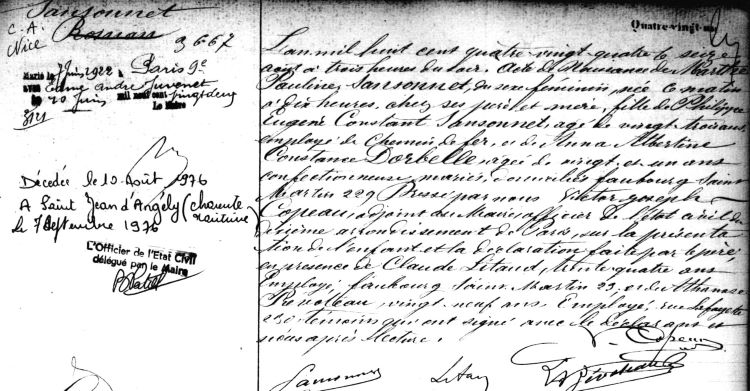 Sansonnet
C. A.
Nice
3667
Marié le 7 Juin 1922 à Paris 9e
avec Edme André Juvenet
le 20 Juin mil neuf cent vingt deux
Le Maire
Décédée le 10 Août 1976
A Saint Jean d'Angély (charente
maritime)
le 7 Septembre 1976
L'Officier de l'Etat Civil
délégué par le Maire
Quatre vingt
L'an mil huit cent quatre vingt quatre le seize
août à trois heures du soir. Acte de Naissance de Marthe
Pauline Sansonnet, du sexe féminin, née ce matin
à dix heures, chez ses père et mère, fille de Philippe
Eugène Constant Sansonnet, âgé de vingt trois ans
employé de Chemin de fer, et de Anna Albertine
Constance Dorbelle, âgée de vingt et un ans
confectionneuse mariés, domiciliés faubourg Saint
Martin 229 Dressé par nous Victor Joseph
Copeau, adjoint au Maire officier de l'état civil du
dixième arrondissement de Paris, sur la présenta
tion de l'enfant et la déclaration faite par le père
en présence de Claude Litaud, trente quatre ans
Employé, faubourg Saint Martin 23, et de Athanase
vingt neuf ans Employé, rue Lafayette
230 témoins qui ont signé avec le déclarant et
nous après lecture.
V. Copeau